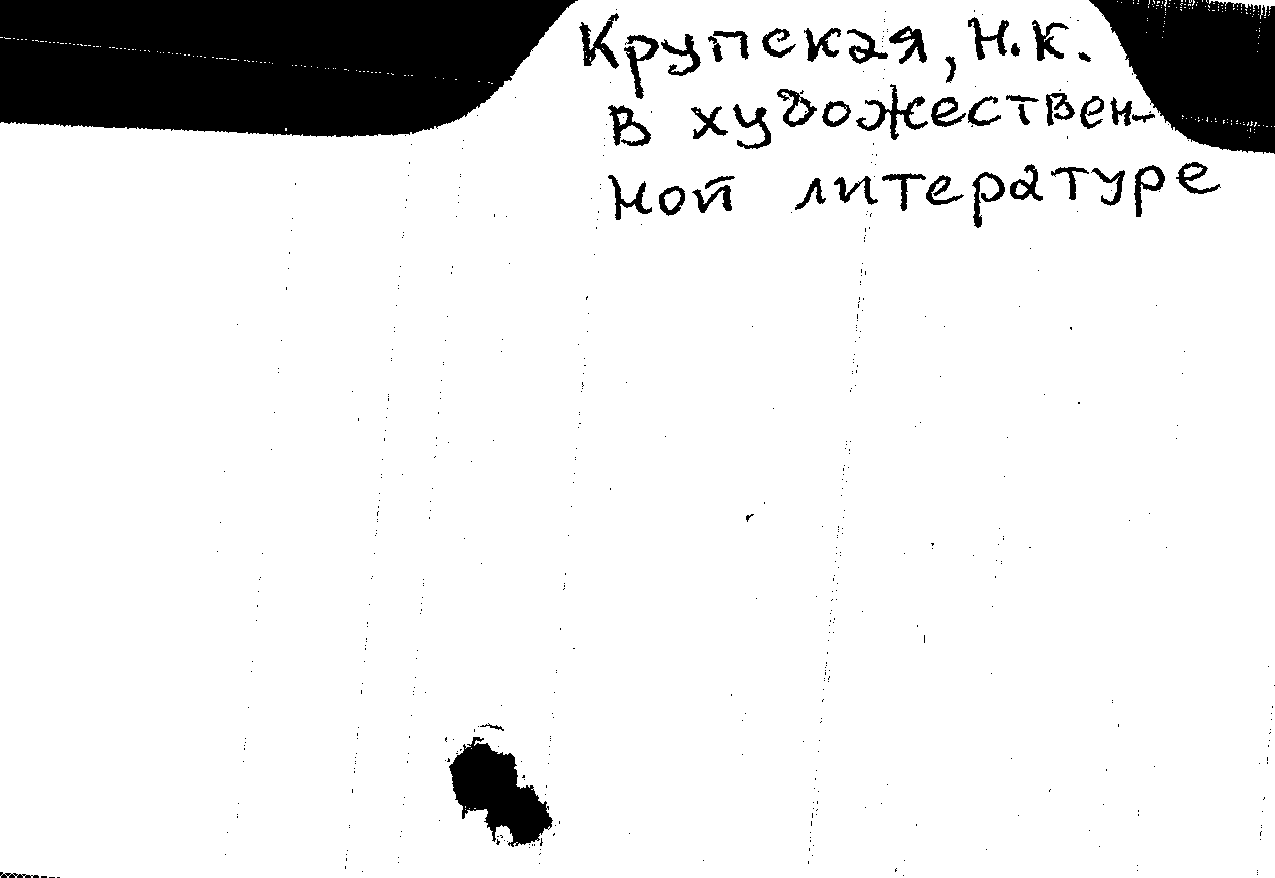 Крупская, Н.К.
в художествен-
ной литературе